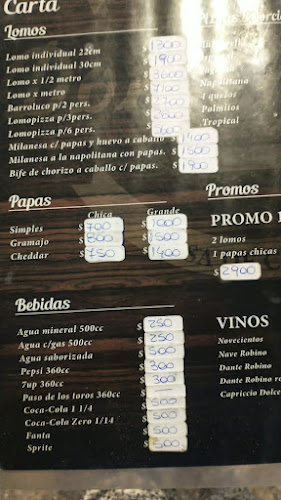 Carta
Lomos
Lomo individual 22cm $ 1300
Lomo individual 30cm $ 1900
Lomo x 1/2 metro $ 3600
Lomo x metro $ 7100
Barroluco p/2 pers. $ 2700
Lomopizza p/3pers. $ 3600
Lomopizza p/6 pers. $ 5600
Milanesa c/ papas y huevo a caballo $ 1400
Milanesa a la napolitana con papas. $ 1500
Bife de chorizo a caballo c/ papas. $ 1900
Napolitana
4 quesos
Palmitos
Tropical
Papas
Chica Grande
Simples $ 700 $ 1000
Gramajo $ 800 $ 1500
Cheddar $ 750 $ 1400
Promos
PROMO
2 lomos
1 papas chicas
$ 2900
Bebidas
Agua mineral 500cc $ 250
Agua c/gas 500cc $ 250
Agua saborizada $ 500
Pepsi 360cc $ 300
7up 360cc $ 300
Paso de los toros 360cc $ —
Coca-Cola 1 1/4 $ 500
Coca-Cola Zero 1/14 $ 500
Fanta $ 500
Sprite $ 500
VINOS
Novecientos
Nave Robino
Dante Robino
Dante Robino
Capriccio Dolce